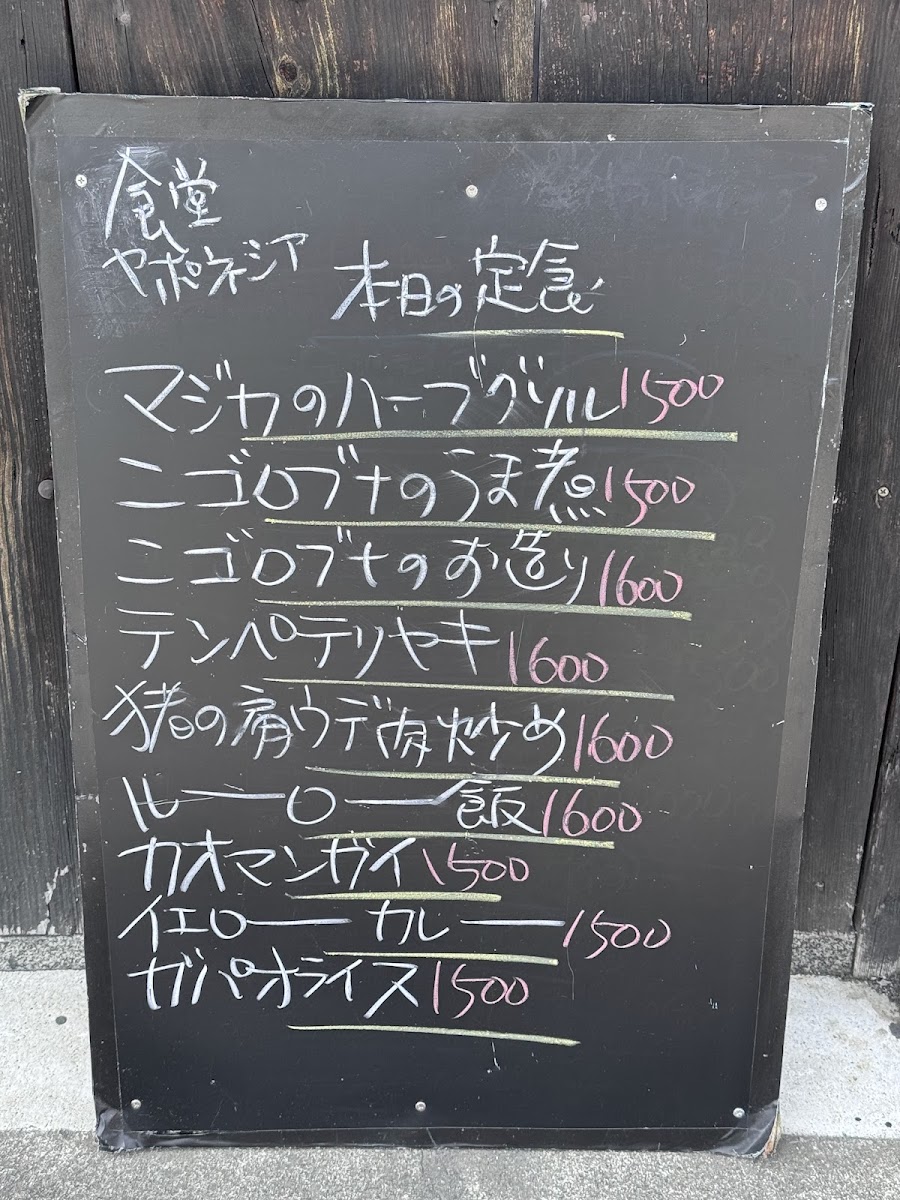 食堂
ヤポネシア
本日の定食
マジカのハーブグリル 1500
ニゴロブナのうま煮 1500
ニゴロブナのお造り 1600
テンペテリヤキ 1600
猪の肩ウデ肉炒め 1600
ルーロー飯 1600
カオマンガイ 1500
イエローカレー 1500
ガパオライス 1500